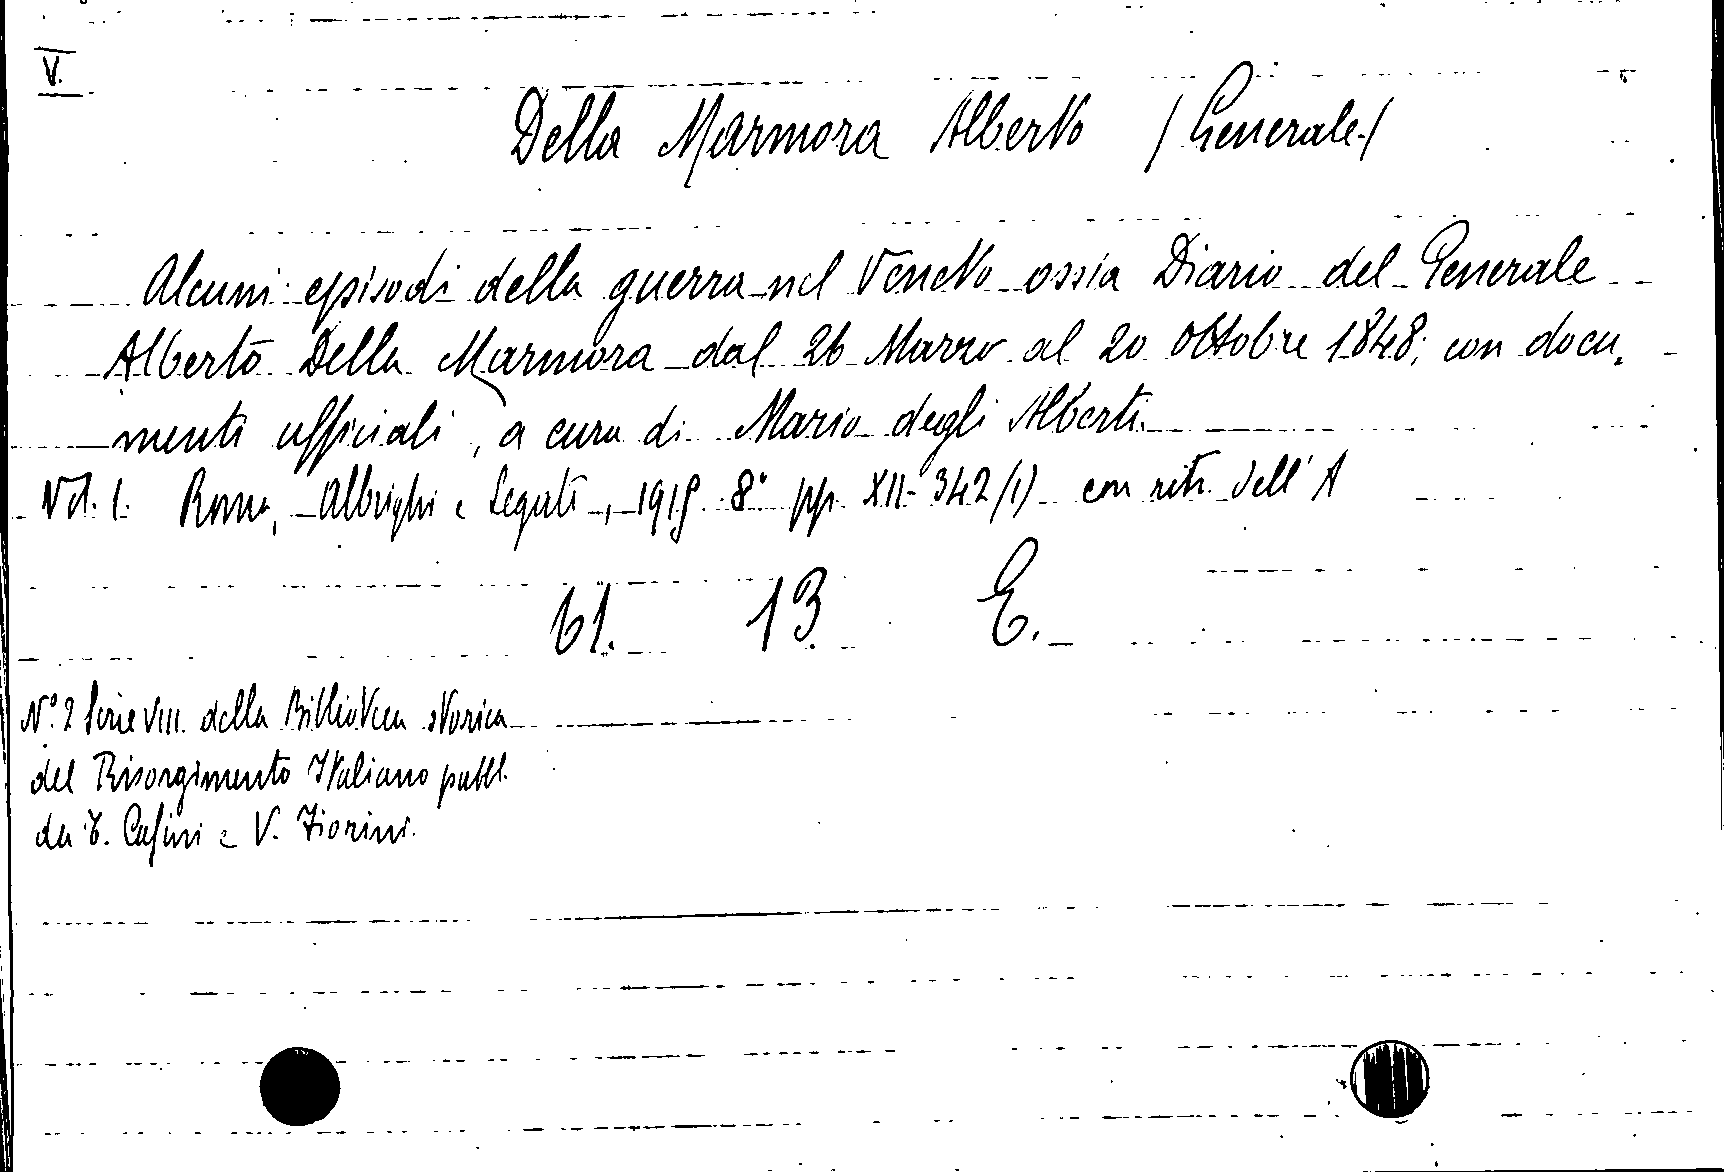 V.
Della Marmora Alberto (Generale)
Alcuni episodi della guerra nel Veneto ossia Diario del Generale
Alberto Della Marmora dal 26 Marzo al 20 Ottobre 1848; con docu-
menti ufficiali, a cura di Mario degli Alberti.
Vol. I. Roma, Albrighi e Segati, 1915 8° pp. XII-342 (1) con ritr. dell'A
61. 13. E.
N.° 2 Serie VIII. della Biblioteca storica
del Risorgimento Italiano pubbl.
da T. Casini e V. Fiorini.